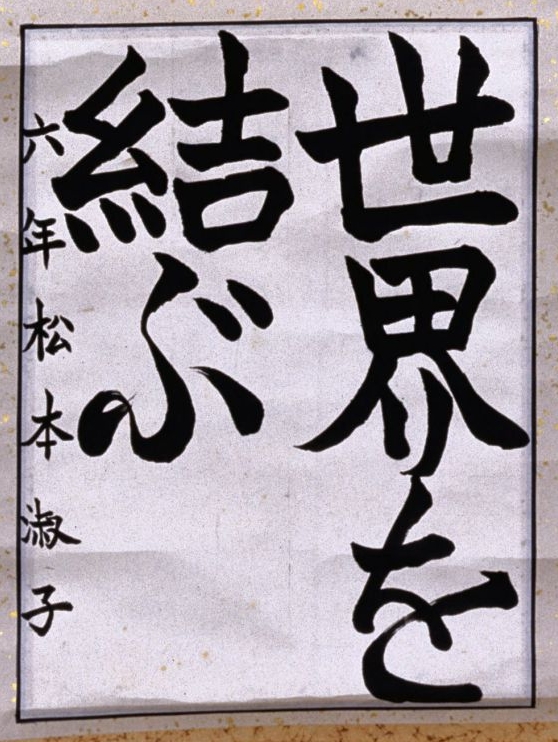 世界を
結ぶ
六年松本淑子